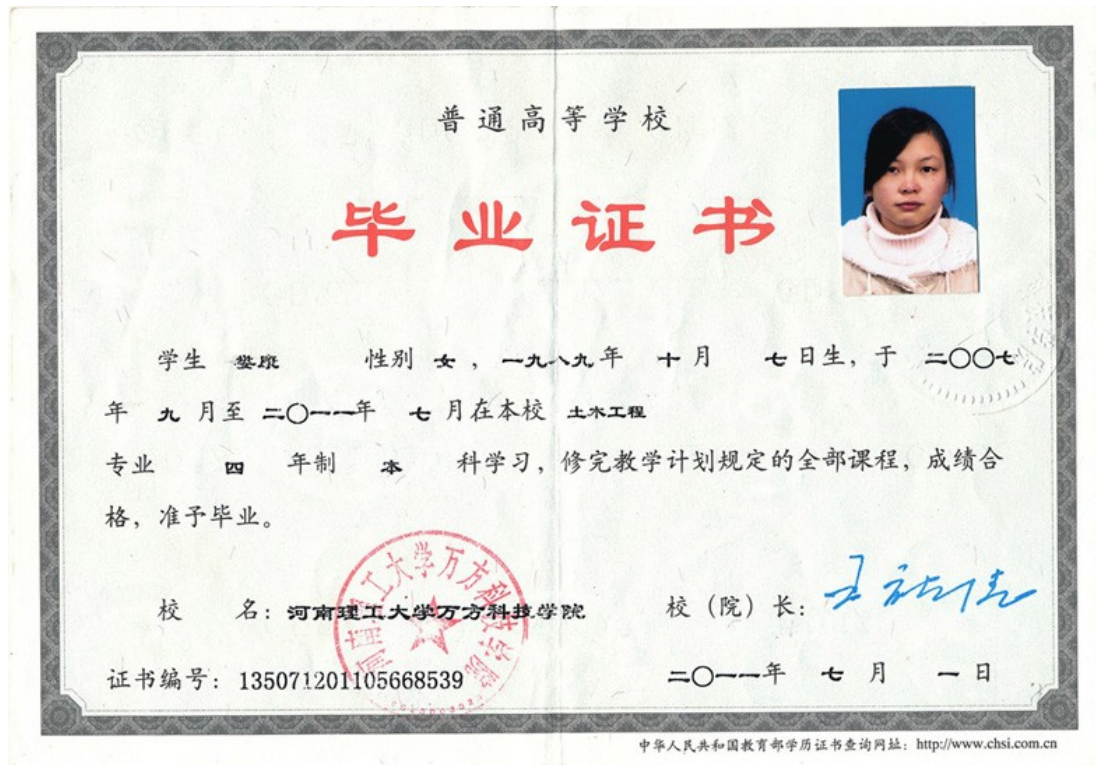 普通高等学校
毕业证书
学生 娄康 性别 女，一九八九年 十月 七日生，于 二〇〇七
年 九 月至 二〇一一年 七 月在本校 土木工程
专业 四 年制 本 科学习，修完教学计划规定的全部课程，成绩合
格，准予毕业。
校 名：河南理工大学万方科技学院
校（院）长：
证书编号：135071201105668539
二〇一一年 七 月 一 日
河南理工大学万方科技学院
中华人民共和国教育部学历证书查询网址：http://www.chsi.com.cn